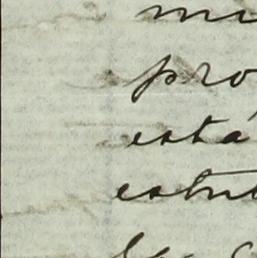 mi
pro
está
estu